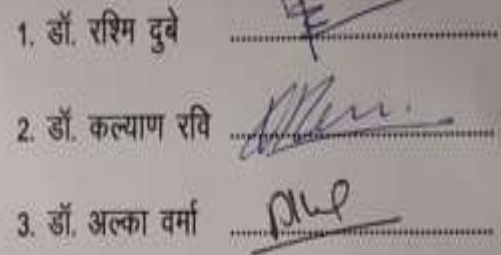 1. डॉ. रश्मि दुबे
2. डॉ. कल्याण रवि
3. डॉ. अल्का वर्मा